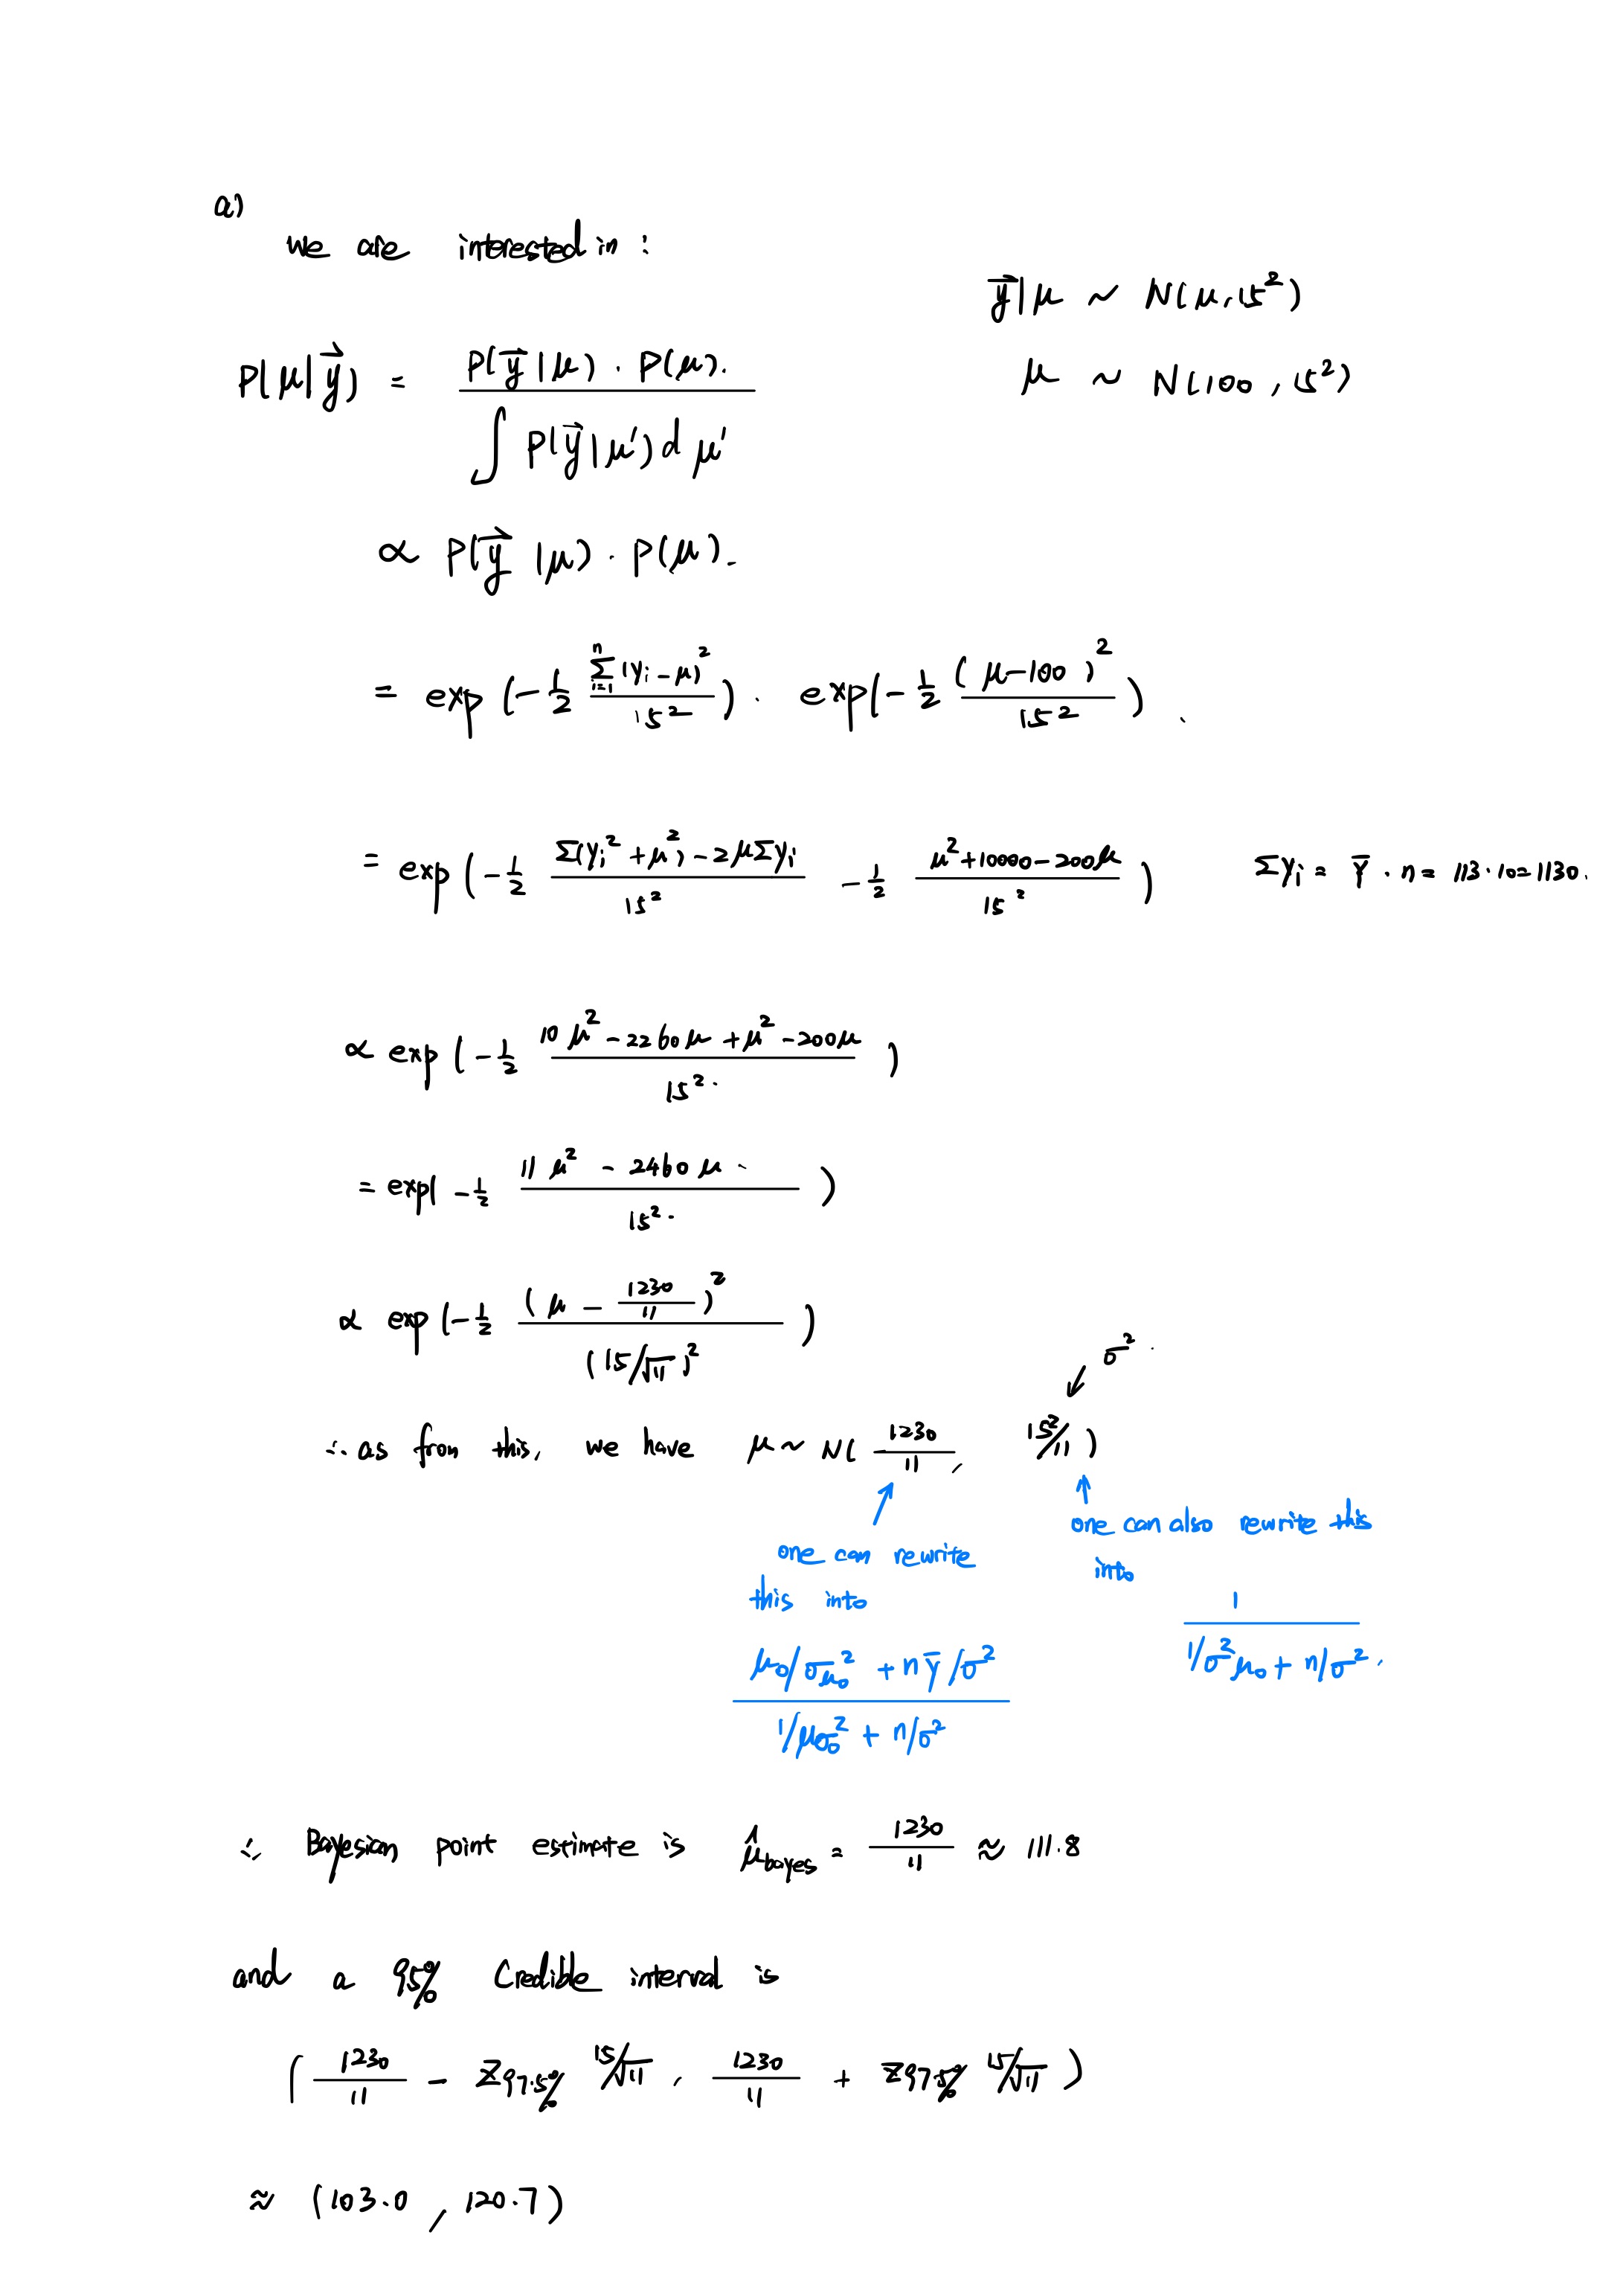 a)
we are interested in :
y⃗|μ ~ N(μ, 15²)
P(μ|y⃗) = P(y⃗|μ) · P(μ). / ∫ P(y⃗|μ')dμ'
μ ~ N(100, 15²)
∝ P(y⃗|μ) · P(μ).
= exp(-1/2 Σⁿᵢ₌₁(yᵢ-μ)²/15²) · exp(-1/2 (μ-100)²/15²).
= exp(-1/2 (Σ(yᵢ²+μ²)-2μΣyᵢ)/15² - 1/2 (μ²+10000-200μ)/15²)
Σyᵢ = ȳ · n = 113·10=1130.
∝ exp(-1/2 (10μ²-2260μ+μ²-200μ)/15²)
= exp(-1/2 (11μ² - 2460μ)/15²)
∝ exp(-1/2 (μ - 1230/11)²/(15/√11)²)
σ²
∴ as from this, we have μ ~ N(1230/11, 15²/11)
one can rewrite
this into
(μ₀/σ_μ₀² + nȳ/σ²)/(1/μσ₀² + n/σ²)
one can also rewrite this
into
1/(1/σ²μ₀ + n/σ²).
∴ Bayesian point estimate is μ̂bayes = 1230/11 ≈ 111.8
and a 95% Credible interval is
(1230/11 - Z97.5% 15/√11, 1230/11 + Z97.5% 15/√11)
≈ (103.0, 120.7)